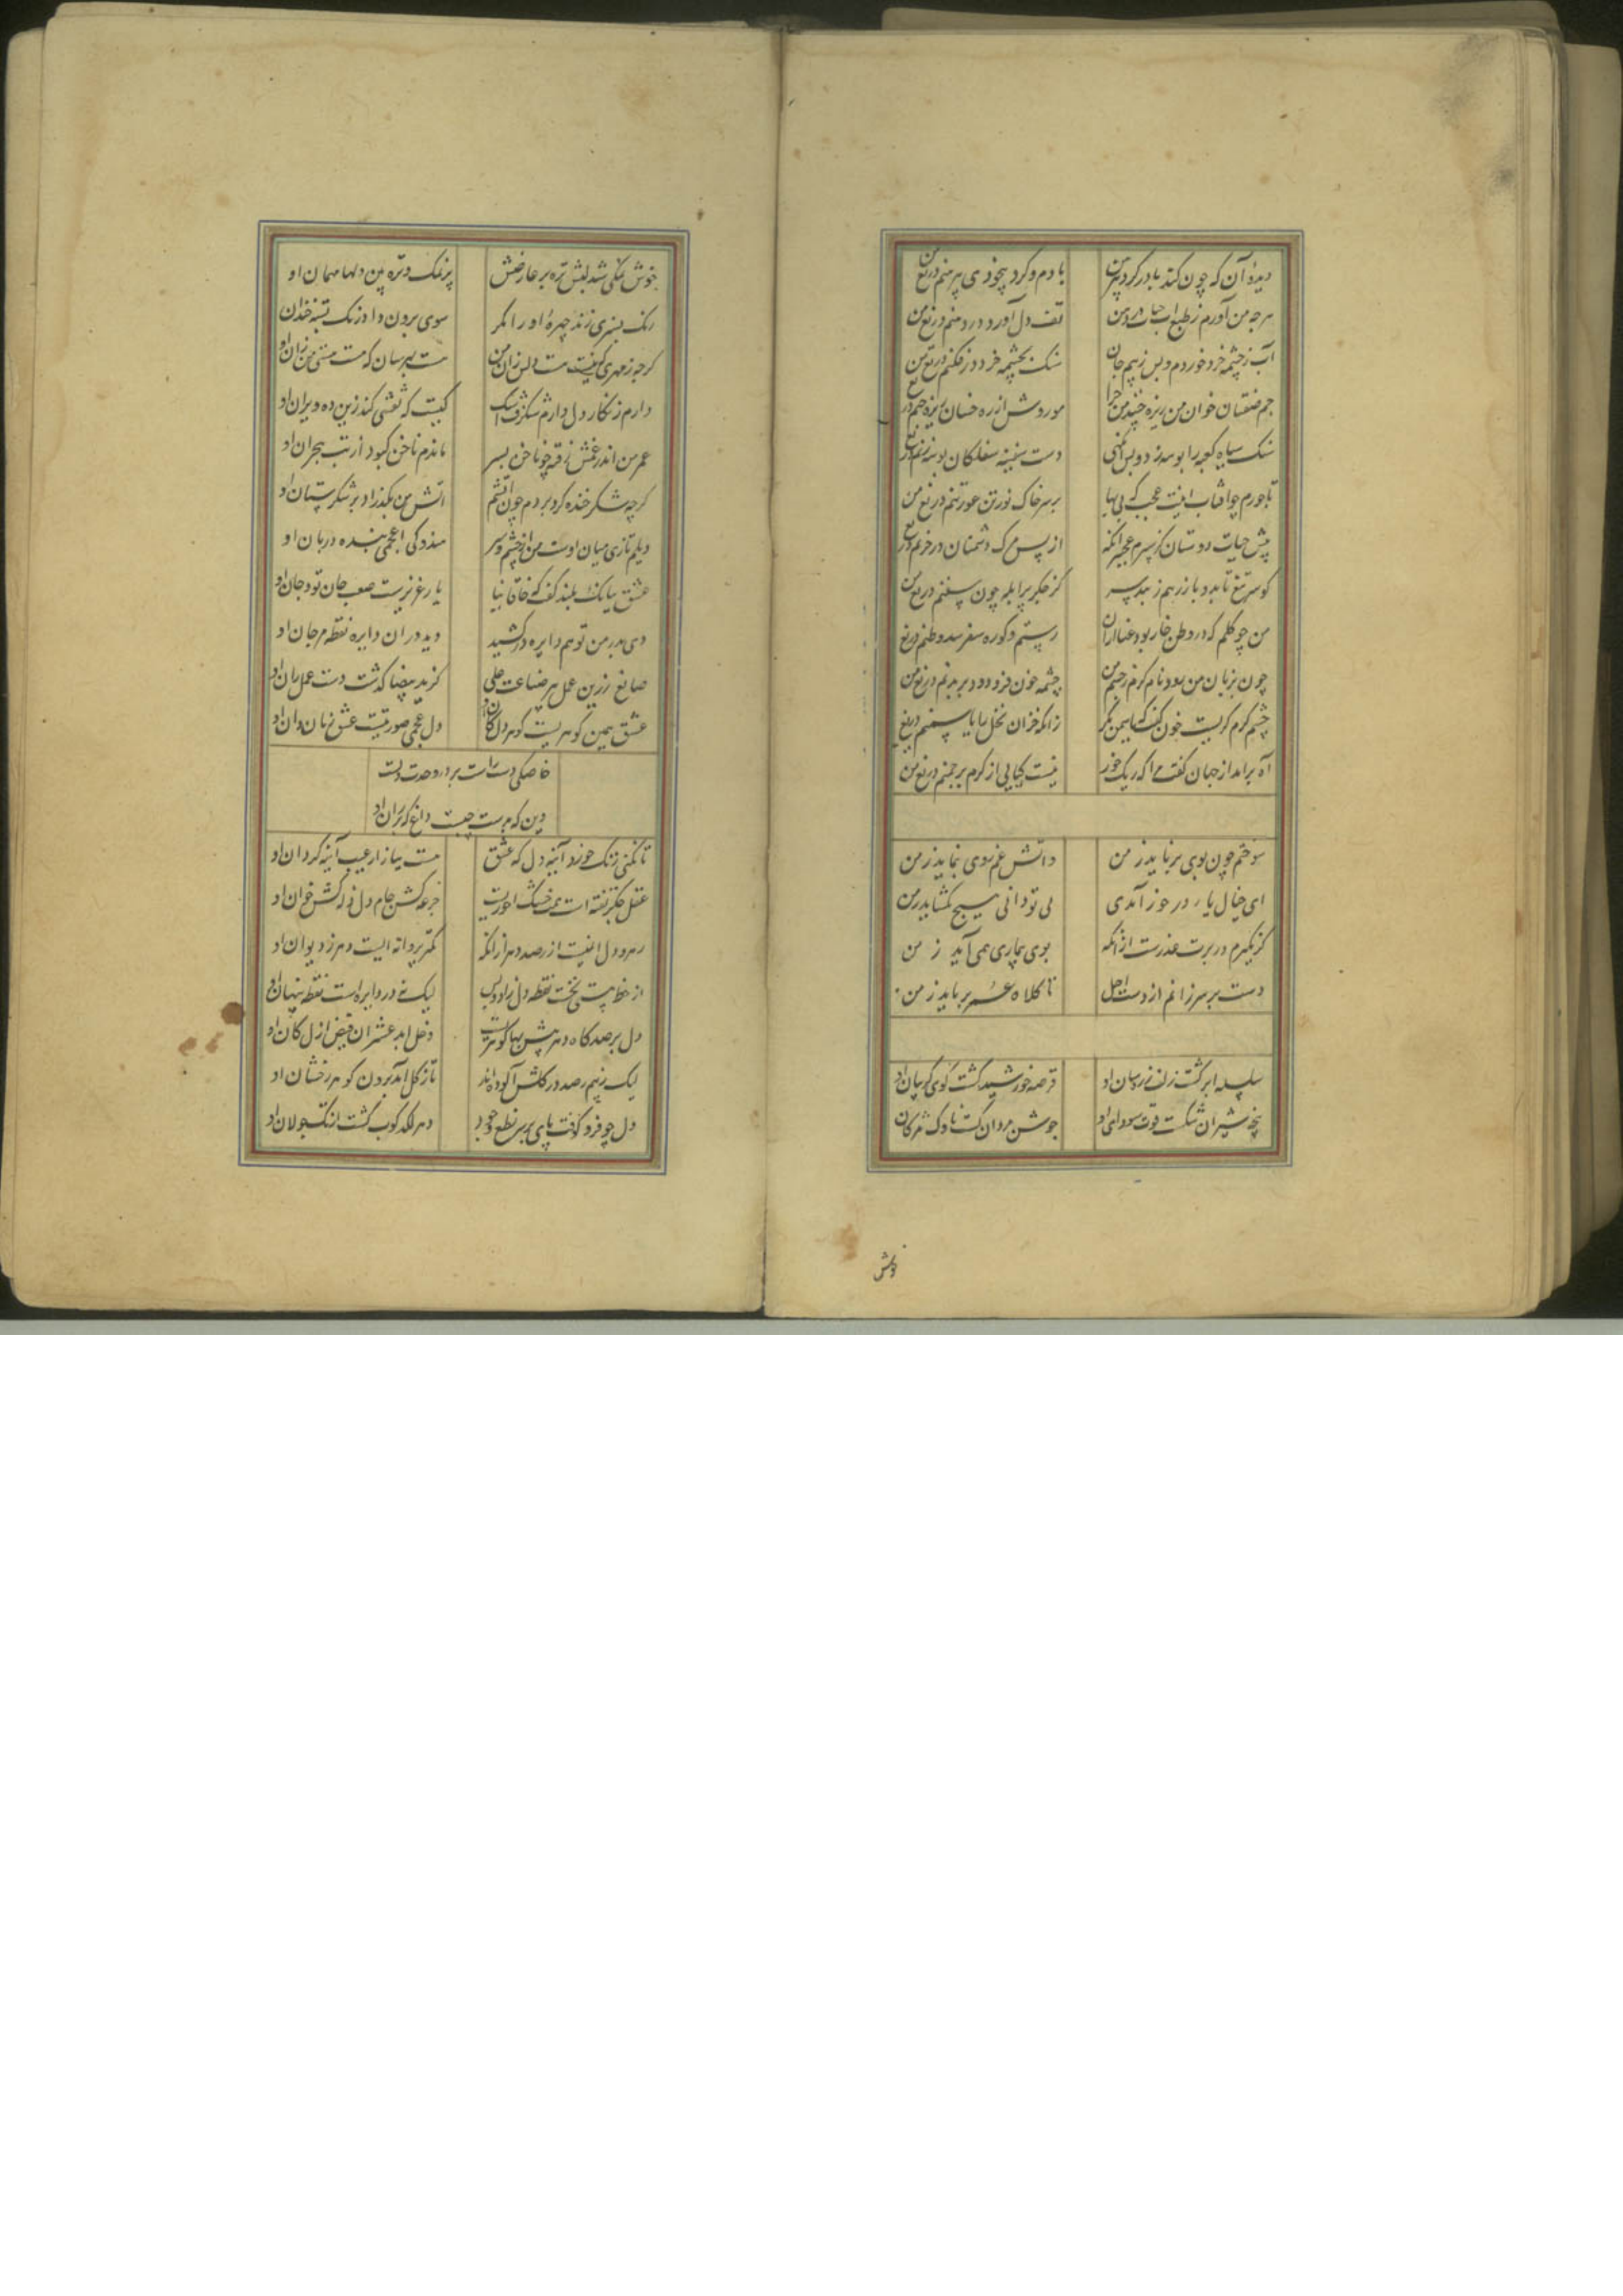 دیدهٔ آن که چون کند بادرکرد پیرهن یا دم و کرد بیخودی پیرهنم دریغ من
هرچه من آورم ز طبع آب حیات در دهن تف دل آورد در دهنم دریغ من
آب ز چشمه خرد خوردم و پس ز بیم جان سنک بچشمه خرد در فکنم دریغ من
خوان من ریزه موروش از ره خسان ریزه
سنک سیاه کعبه را بوسه زد و پس دست سفینه سفلکان بوسه زنم
تاجورم چو آفتاب اینت عجب که بی بها بر سر خاک نور تن عور تنم دریغ من
پیش حیات دوستان از پس مرک دشمنان
کوسر تیغ تا بدو باز رهم ز بند سر کز جکر پر آبله چون سفنم دریغ من
من چو کلم که در وطن خار بود
چون بزبان من رود نام کرم ز چشم من چشمه خون فرو دود بر بدنم دریغ من
چشم کرم کریست خون زانکه خزان نخل
آه برآمد از جهان کفت مرا که ریک خور نیست کیایی از کرم دریغ من
سوختم چون بوی برناید ز من واتش غم روی ننماید ز من
ای خیال یار در خور آمدی بی تو دانی هیچ نکشاید ز من
کر نکیرم در برت عذرست ازانکه بوی بیماری همی آید ز من
دست بر سر زانم از دست اجل تا کلاه عمر برباید ز من
سلسله ابر کشت زلف زره سان او قرصه خورشید کشت کوی کریبان او
پنجه شیران شکست قوت سودای او جوشن مردان کست ناوک مژکان
خوش نمکی شد لبش تره تر عارضش بر نمک و تره بین دلها مهمان او
رنک بسبزی زند چهره او را مکر سوی برون داد رنک پسته خندان
کرچه ز مهری که نیست نیست دلش زان من هست بهر سان که هست هستی من زان او
دارم زنکار دل دارم شنکرف اشک کیست که نقشی کند زین ده ویران او
عمر من اندر غمش رفت چو ناخن بسر ماندم ناخن کبود از تب هجران او
کرچه شکر خنده کرد بر دم چون آتشم آتش من مکذراد بر شکرستان او
دیلم تازی میان اوست من از چشم و سر هندوکی اعجمی بنده دربان او
عشق ببانک بلند کفت که خاقانیا یار عزیزست صعب جان تو و جان او
دی بدر من توهم دایره در کشید دید در ان دایره نقطه مرجان او
صانع زرین عمل پیر صناعت علی کز ید بیضا کذشت دست عمل ران او
عشق بهین کوهریست کوهر دل کان او دل عجمی صورتیست عشق زبان دان او
خاصکی دست راست بر در وحدت دلست
دین که بدست چپست داغ کر ران او
تا نکنی زنک خورد آینه دل که عشق هست بیازار عیب آینه کردان او
عقل جکر تفته ایست همت خشک آخوریست جرعه کش جام دل زله کش خوان او
رهرو دل ایمنست از رصد دهر ازانکه کمتر پروانه ایست دهر ز دیوان او
از خط هستی نخست نقطه دل زاد و بس لیک نه در دایره است نقطه پنهان او
دل برصدکاه دهر بیش بها کوهریست دخل ابد عشر آن فیض ازل کان او
لیک ز بیم رصد در کلش آلوده اند تاز کل آمد برون کوهر رخشان او
دل چو فرو کوفت پای بر سر نطع وجود دهر لکدکوب کشت از تک جولان او
خوش